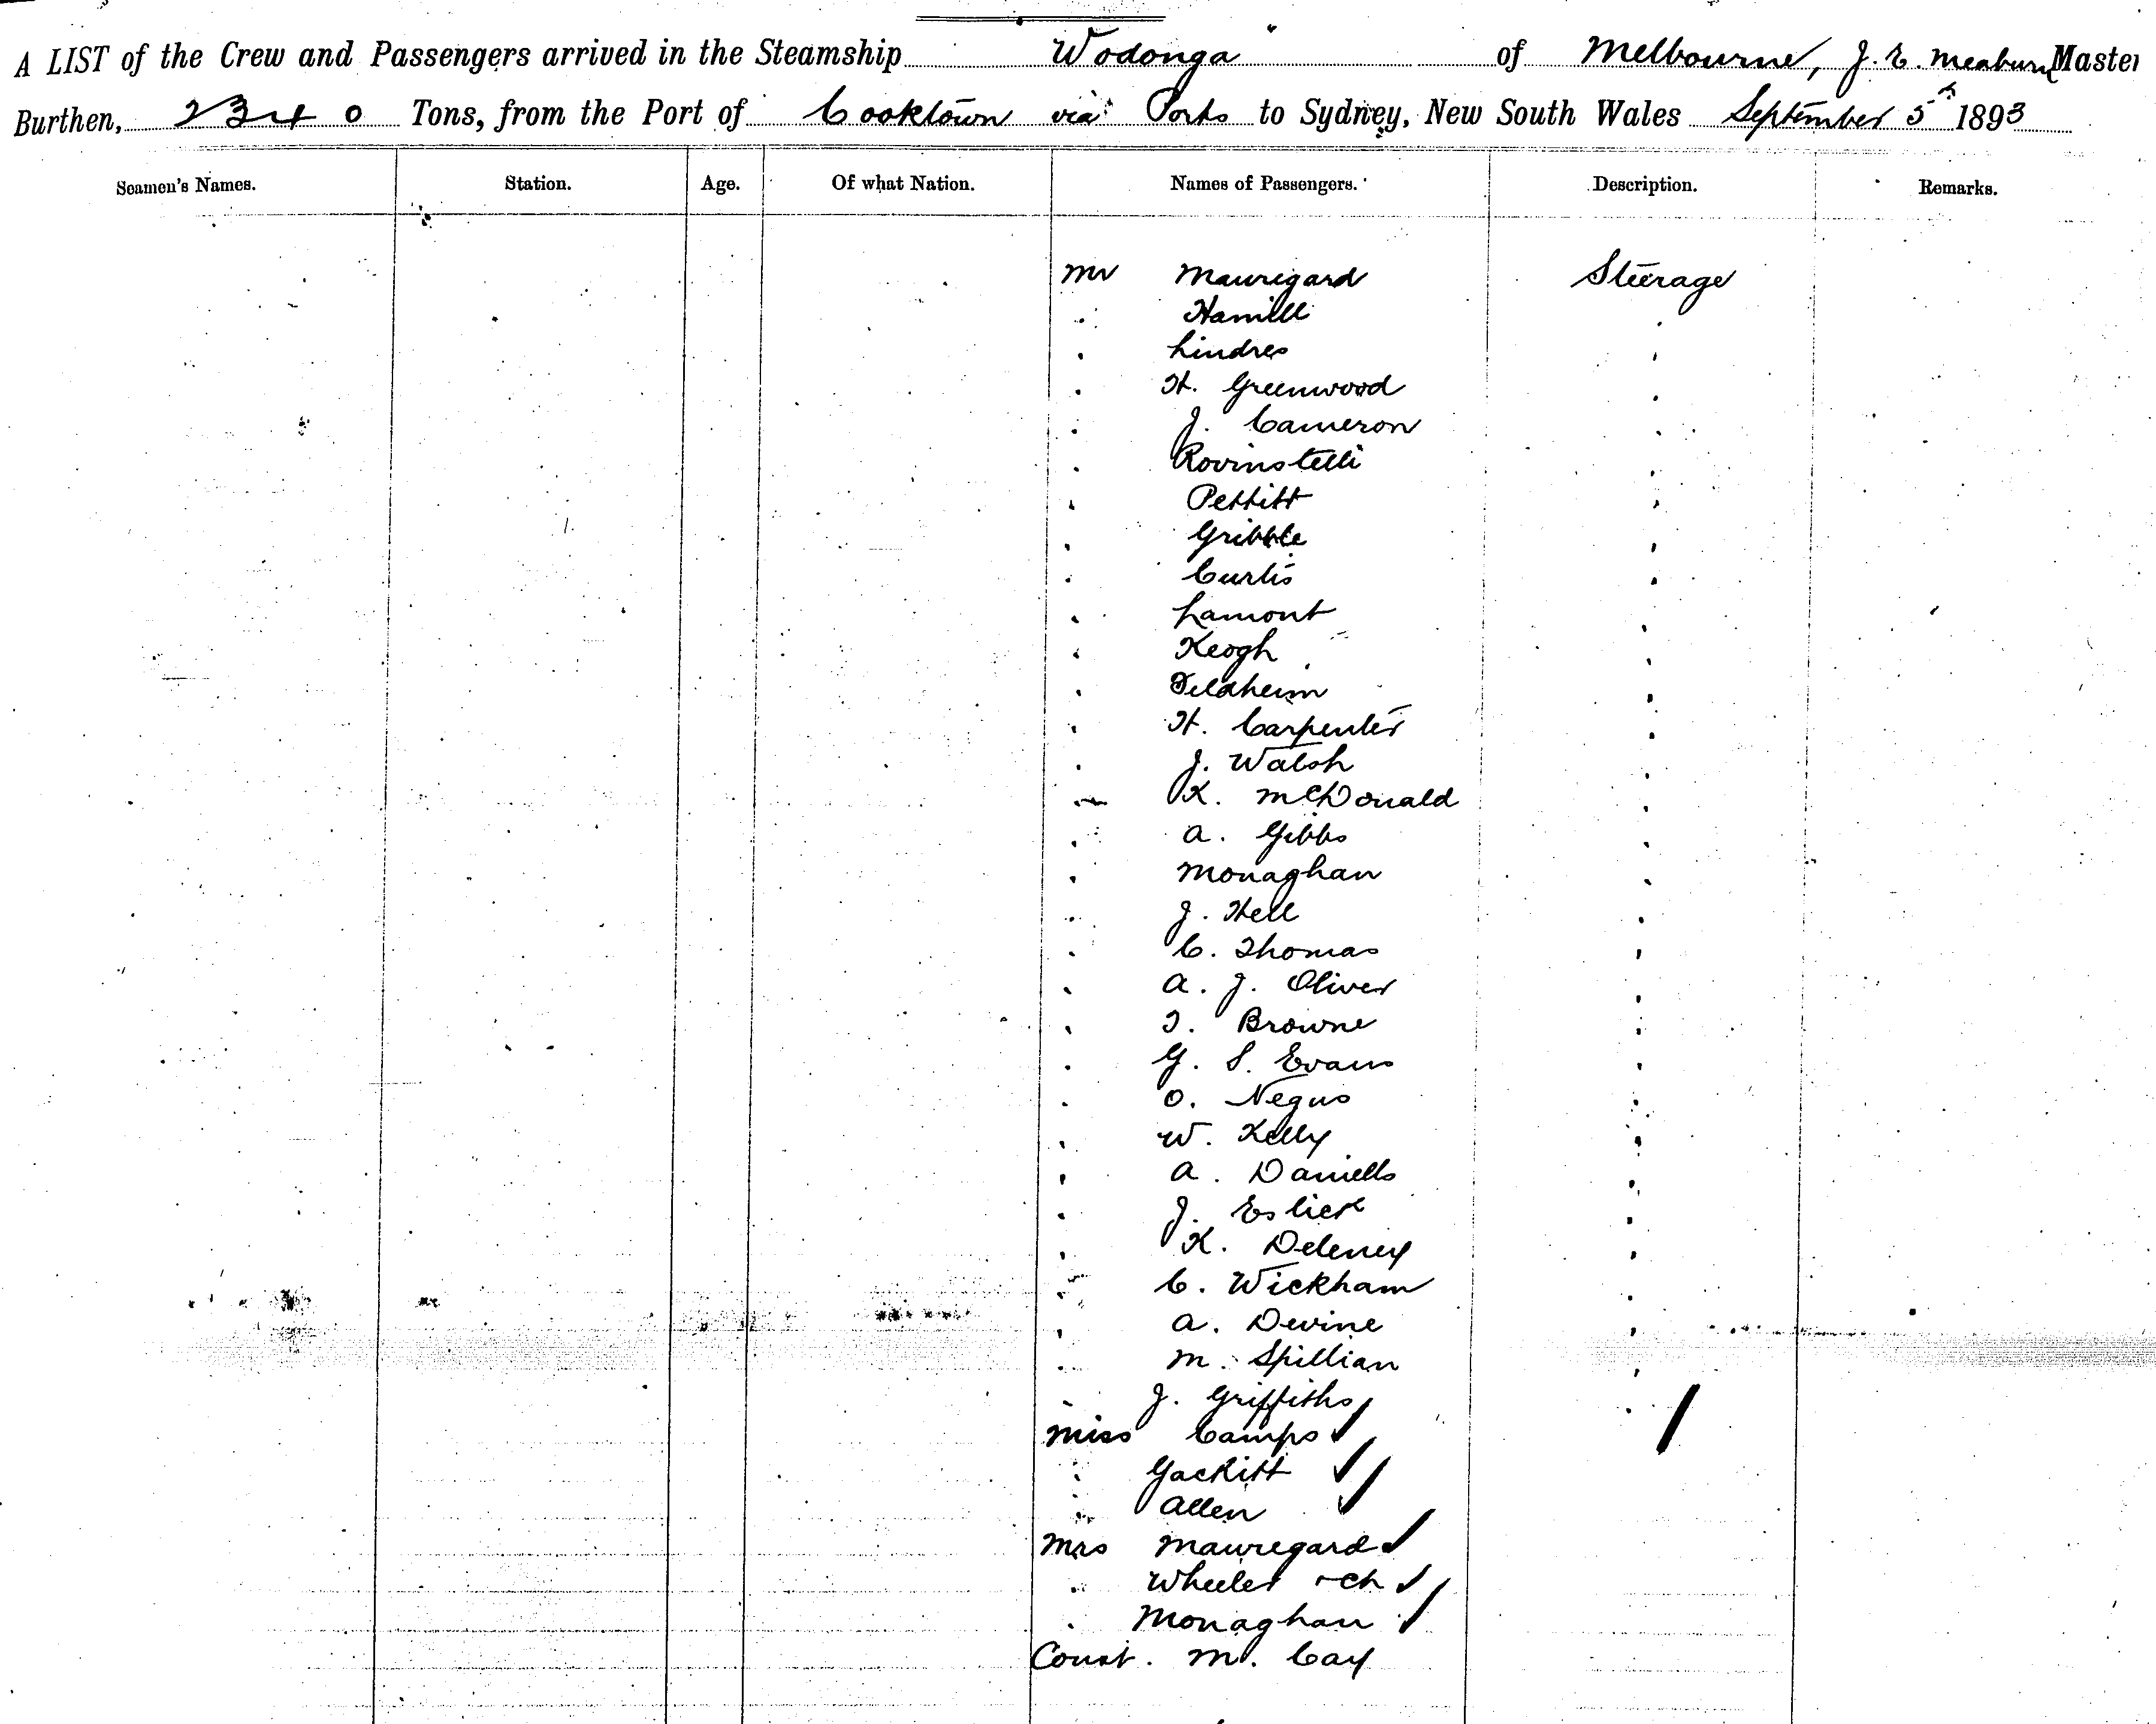 A LIST of the Crew and Passengers arrived in the Steamship "Wodonga" of Melbourne, J. E. Meaburn Master
Burthen, 2340 Tons, from the Port of Cooktown via Ports to Sydney, New South Wales September 5th 1893
Seamen's Names. Station. Age. Of what Nation. Names of Passengers. Description. Remarks.
Mr Mauregard Steerage
" Hamill "
" Lindres "
" H. Greenwood "
" J. Cameron "
" Rovinstelli "
" Pettitt "
" Gribble "
" Curtis "
" Lamont "
" Keogh "
" Feldheim "
" H. Carpenter "
" J. Walsh "
" K. McDonald "
" A. Gibbs "
" Monaghan "
" J. Hell "
" C. Thomas "
" A. J. Oliver "
" T. Browne "
" G. S. Evans "
" O. Negus "
" W. Kelly "
" A. Daniells "
" J. Eslick "
" K. Deleney "
" C. Wickham "
" A. Devine "
" M. Spillian "
" J. Griffiths "
Miss Camps
" Gackitt
" Allen
Mrs Mauregard
" Wheeler + ch
" Monaghan
Const. M. Cay